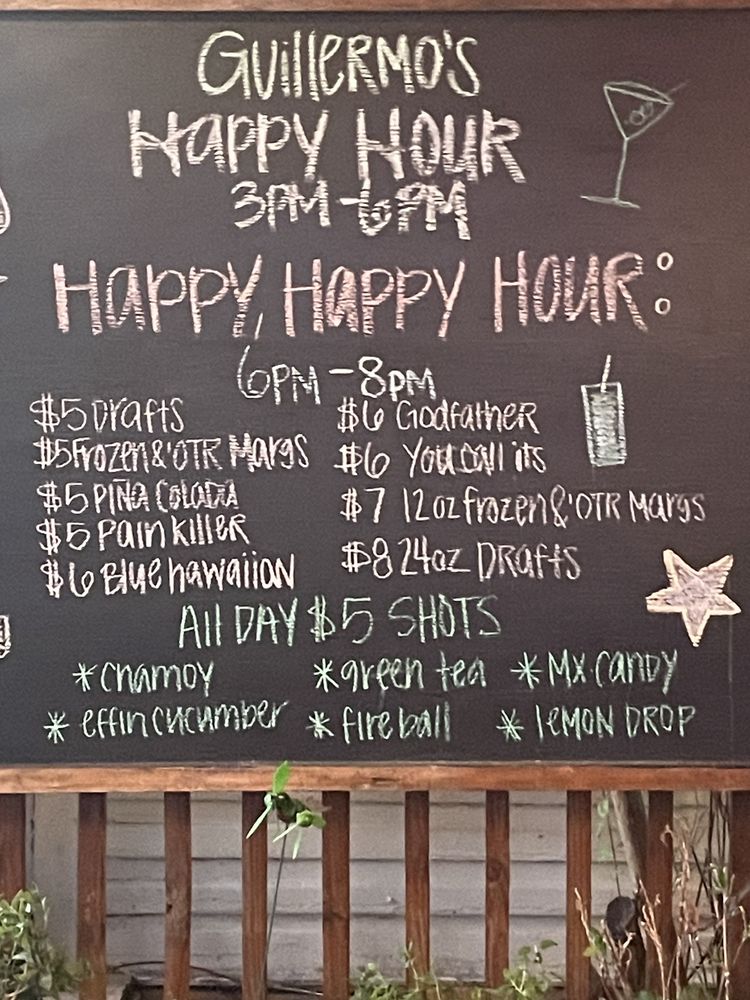 Guillermo's
Happy Hour
3PM-6PM
Happy, Happy Hour:
6PM-8PM
$5 Drafts
$5 Frozen & 'OTR Margs
$5 Piña Colada
$5 Pain killer
$6 Blue hawaiion
$6 Godfather
$6 You call its
$7 12oz frozen & 'OTR Margs
$8 24oz Drafts
All DAY $5 SHOTS
*chamoy *green tea *Mx. Candy
*effin cucumber *fire ball *lemon DROP